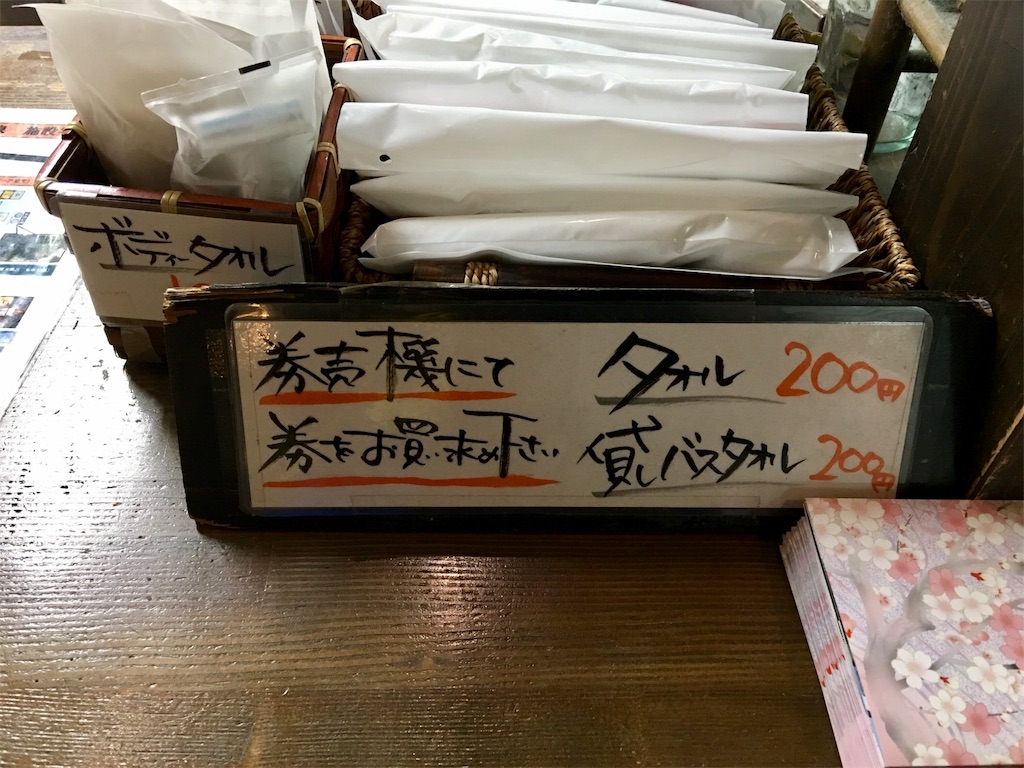 ボディータオル
券売機にて
券をお買い求め下さい
タオル 200円
貸しバスタオル 200円